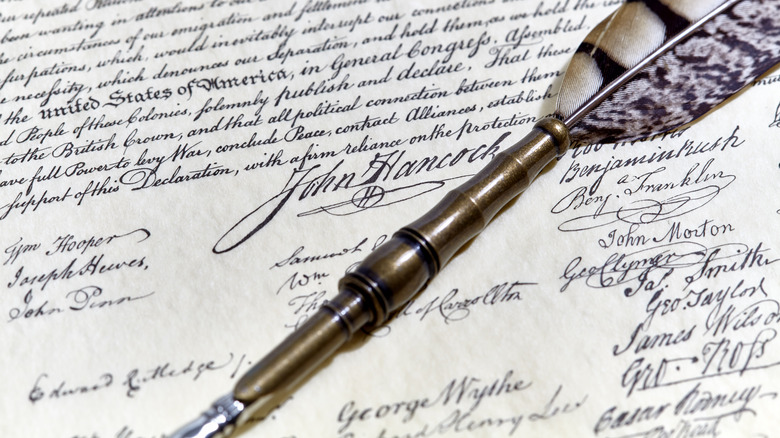 been wanting in attentions to our
the circumstances of our emigration and settlement
usurpations, which, would inevitably interrupt our connections
necessity, which denounces our Separation, and hold them, as we hold the rest
the united States of America, in General Congress, Assembled,
People of these Colonies, solemnly publish and declare, That these
to the British Crown, and that all political connection between them
have full Power to levy War, conclude Peace, contract Alliances, establish
support of this Declaration, with a firm reliance on the protection
John Hancock
Benjamin Rush
Benj. Franklin
John Morton
Geo Clymer
Jas. Smith
Geo. Taylor
James Wilson
Geo. Ross
Caesar Rodney
Wm Hooper
Joseph Hewes,
John Penn
Samuel
Wm
Th
of Carrollton
Edward Rutledge
George Wythe
Richard Henry Lee